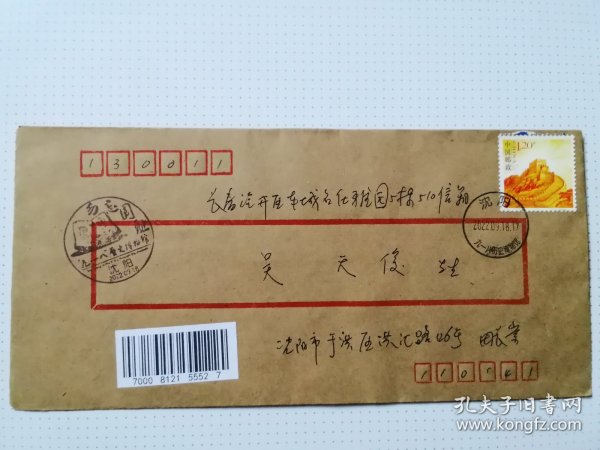 130011
长春汽开区东城名仕雅园5栋510信箱
中国邮政
1.20元
沈阳
2022.09.18.17
九一八历史博物馆
勿忘国耻
九一八历史博物馆
沈阳
2022.09.18
吴天俊
沈阳市于洪区洪汇路46号
110141
7000 8121 5552 7
孔夫子旧书网
www.kongfz.com